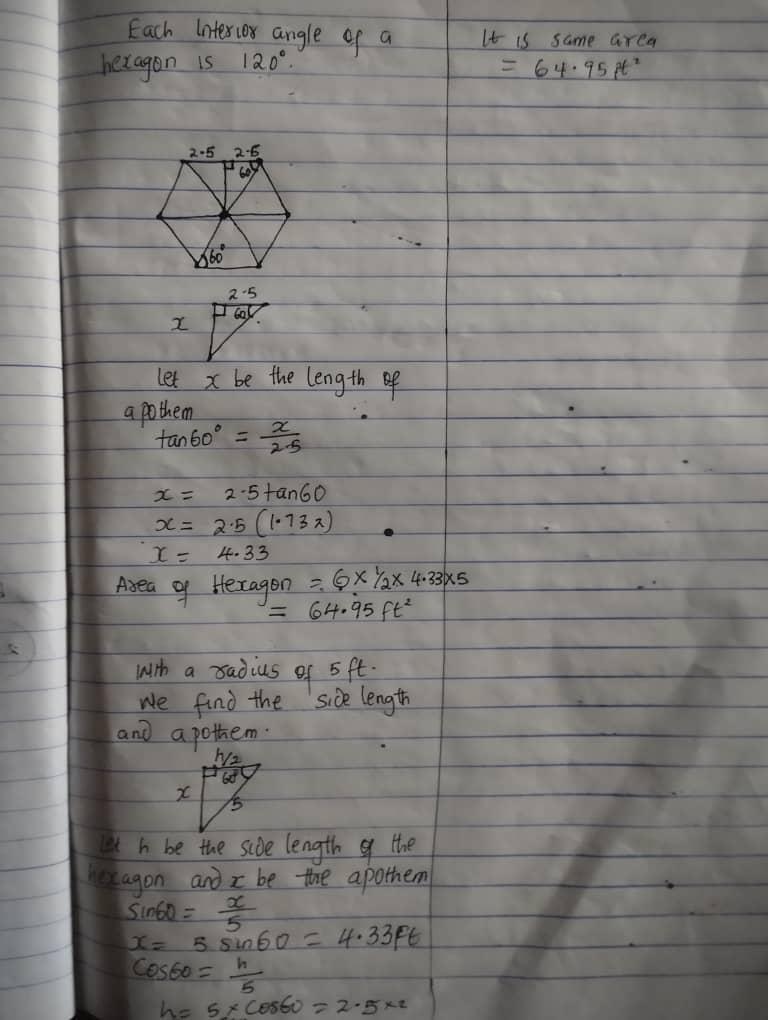 Each Interior angle of a
hexagon is 120°.
2.5 2.5
60
60°
2.5
60
x
Let x be the length of
apothem
tan60° = x/2.5
x = 2.5 tan60
x = 2.5 (1.732)
x = 4.33
Area of Hexagon = 6 x 1/2 x 4.33 x 5
= 64.95 ft²
With a radius of 5 ft.
We find the side length
and apothem.
h/2
60°
x
5
Let h be the side length of the
hexagon and x be the apothem
Sin60 = x/5
x = 5 sin60 = 4.33ft
Cos60 = h/5
h = 5 x Cos60 = 2.5 x 2
It is same area
= 64.95 ft²